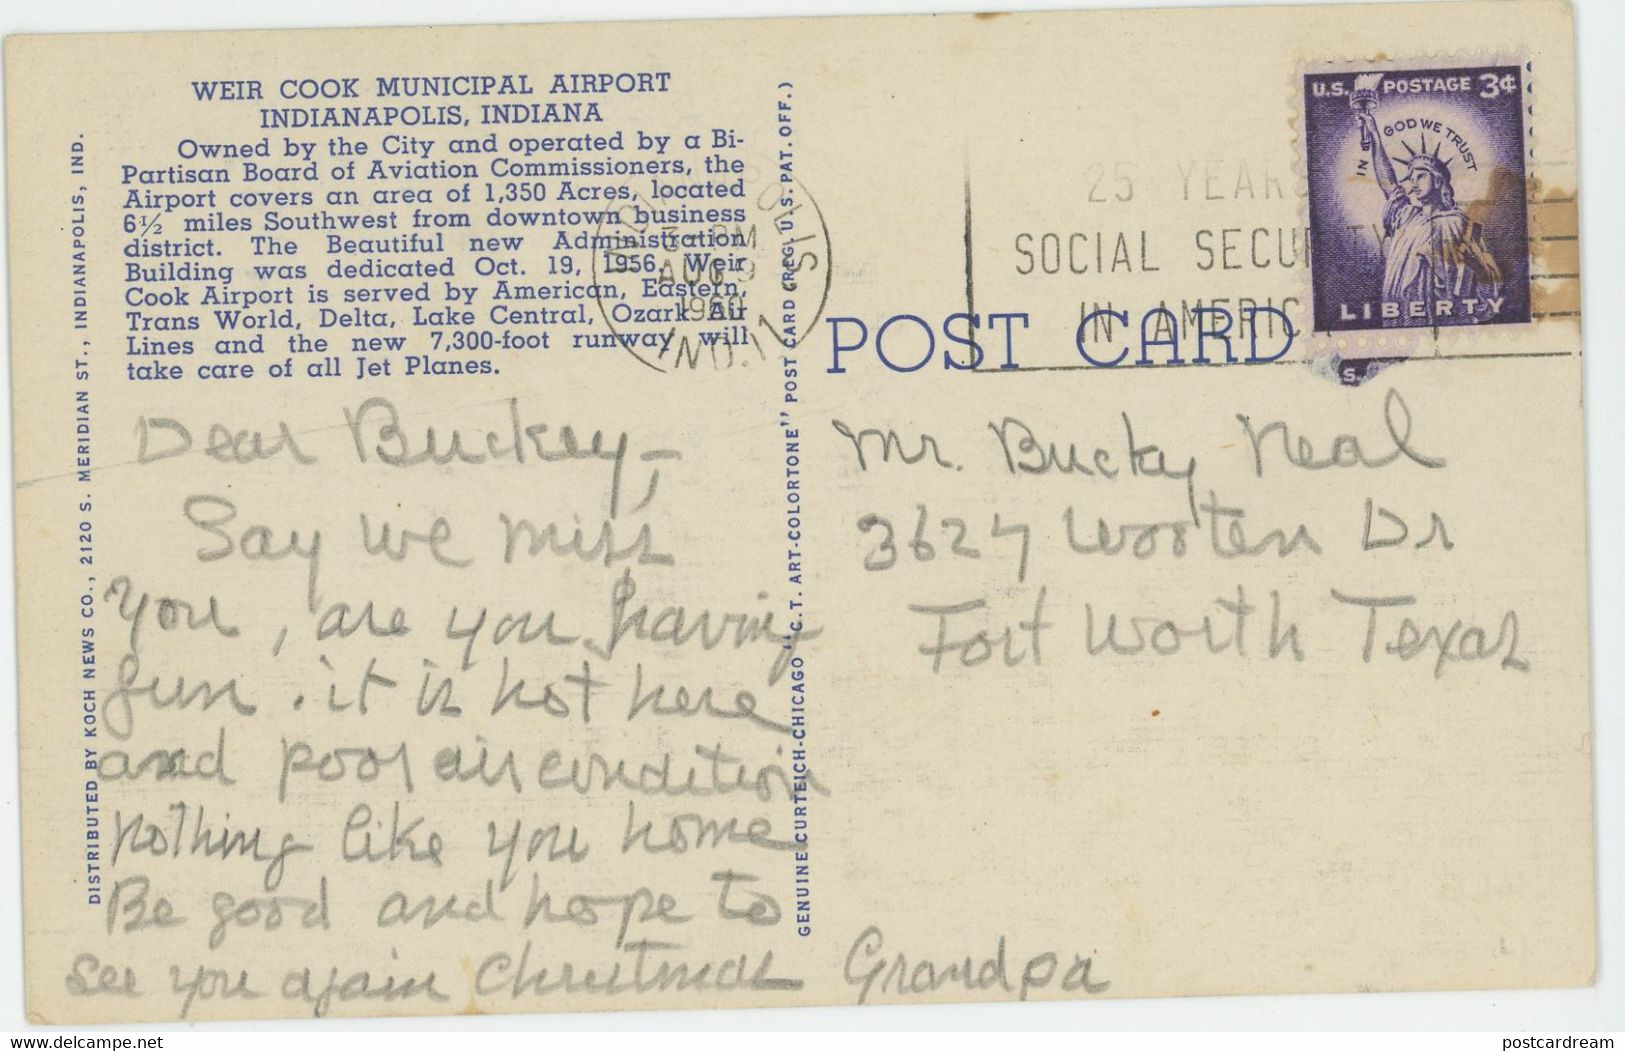 WEIR COOK MUNICIPAL AIRPORT
INDIANAPOLIS, INDIANA
Owned by the City and operated by a Bi-
Partisan Board of Aviation Commissioners, the
Airport covers an area of 1,350 Acres, located
6½ miles Southwest from downtown business
district. The Beautiful new Administration
Building was dedicated Oct. 19, 1956. Weir
Cook Airport is served by American, Eastern,
Trans World, Delta, Lake Central, Ozark Air
Lines and the new 7,300-foot runway will
take care of all Jet Planes.
DISTRIBUTED BY KOCH NEWS CO., 2120 S. MERIDIAN ST., INDIANAPOLIS, IND.
GENUINE CURTEICH-CHICAGO "C.T. ART-COLORTONE" POST CARD (REG. U.S. PAT. OFF.)
INDIANAPOLIS
3 PM
AUG 9
1960
IND. 17
25 YEARS
SOCIAL SECURITY
IN AMERIC
U.S. POSTAGE 3¢
IN GOD WE TRUST
LIBERTY
S.
POST CARD
Dear Buckey,-
Say we miss
you, are you having
fun. it is hot here
and poor air condition
nothing like you home
Be good and hope to
see you again Christmas
Grandpa
Mr. Bucky Neal
3627 Wooten Dr
Fort Worth Texas
delcampe.net
postcardream